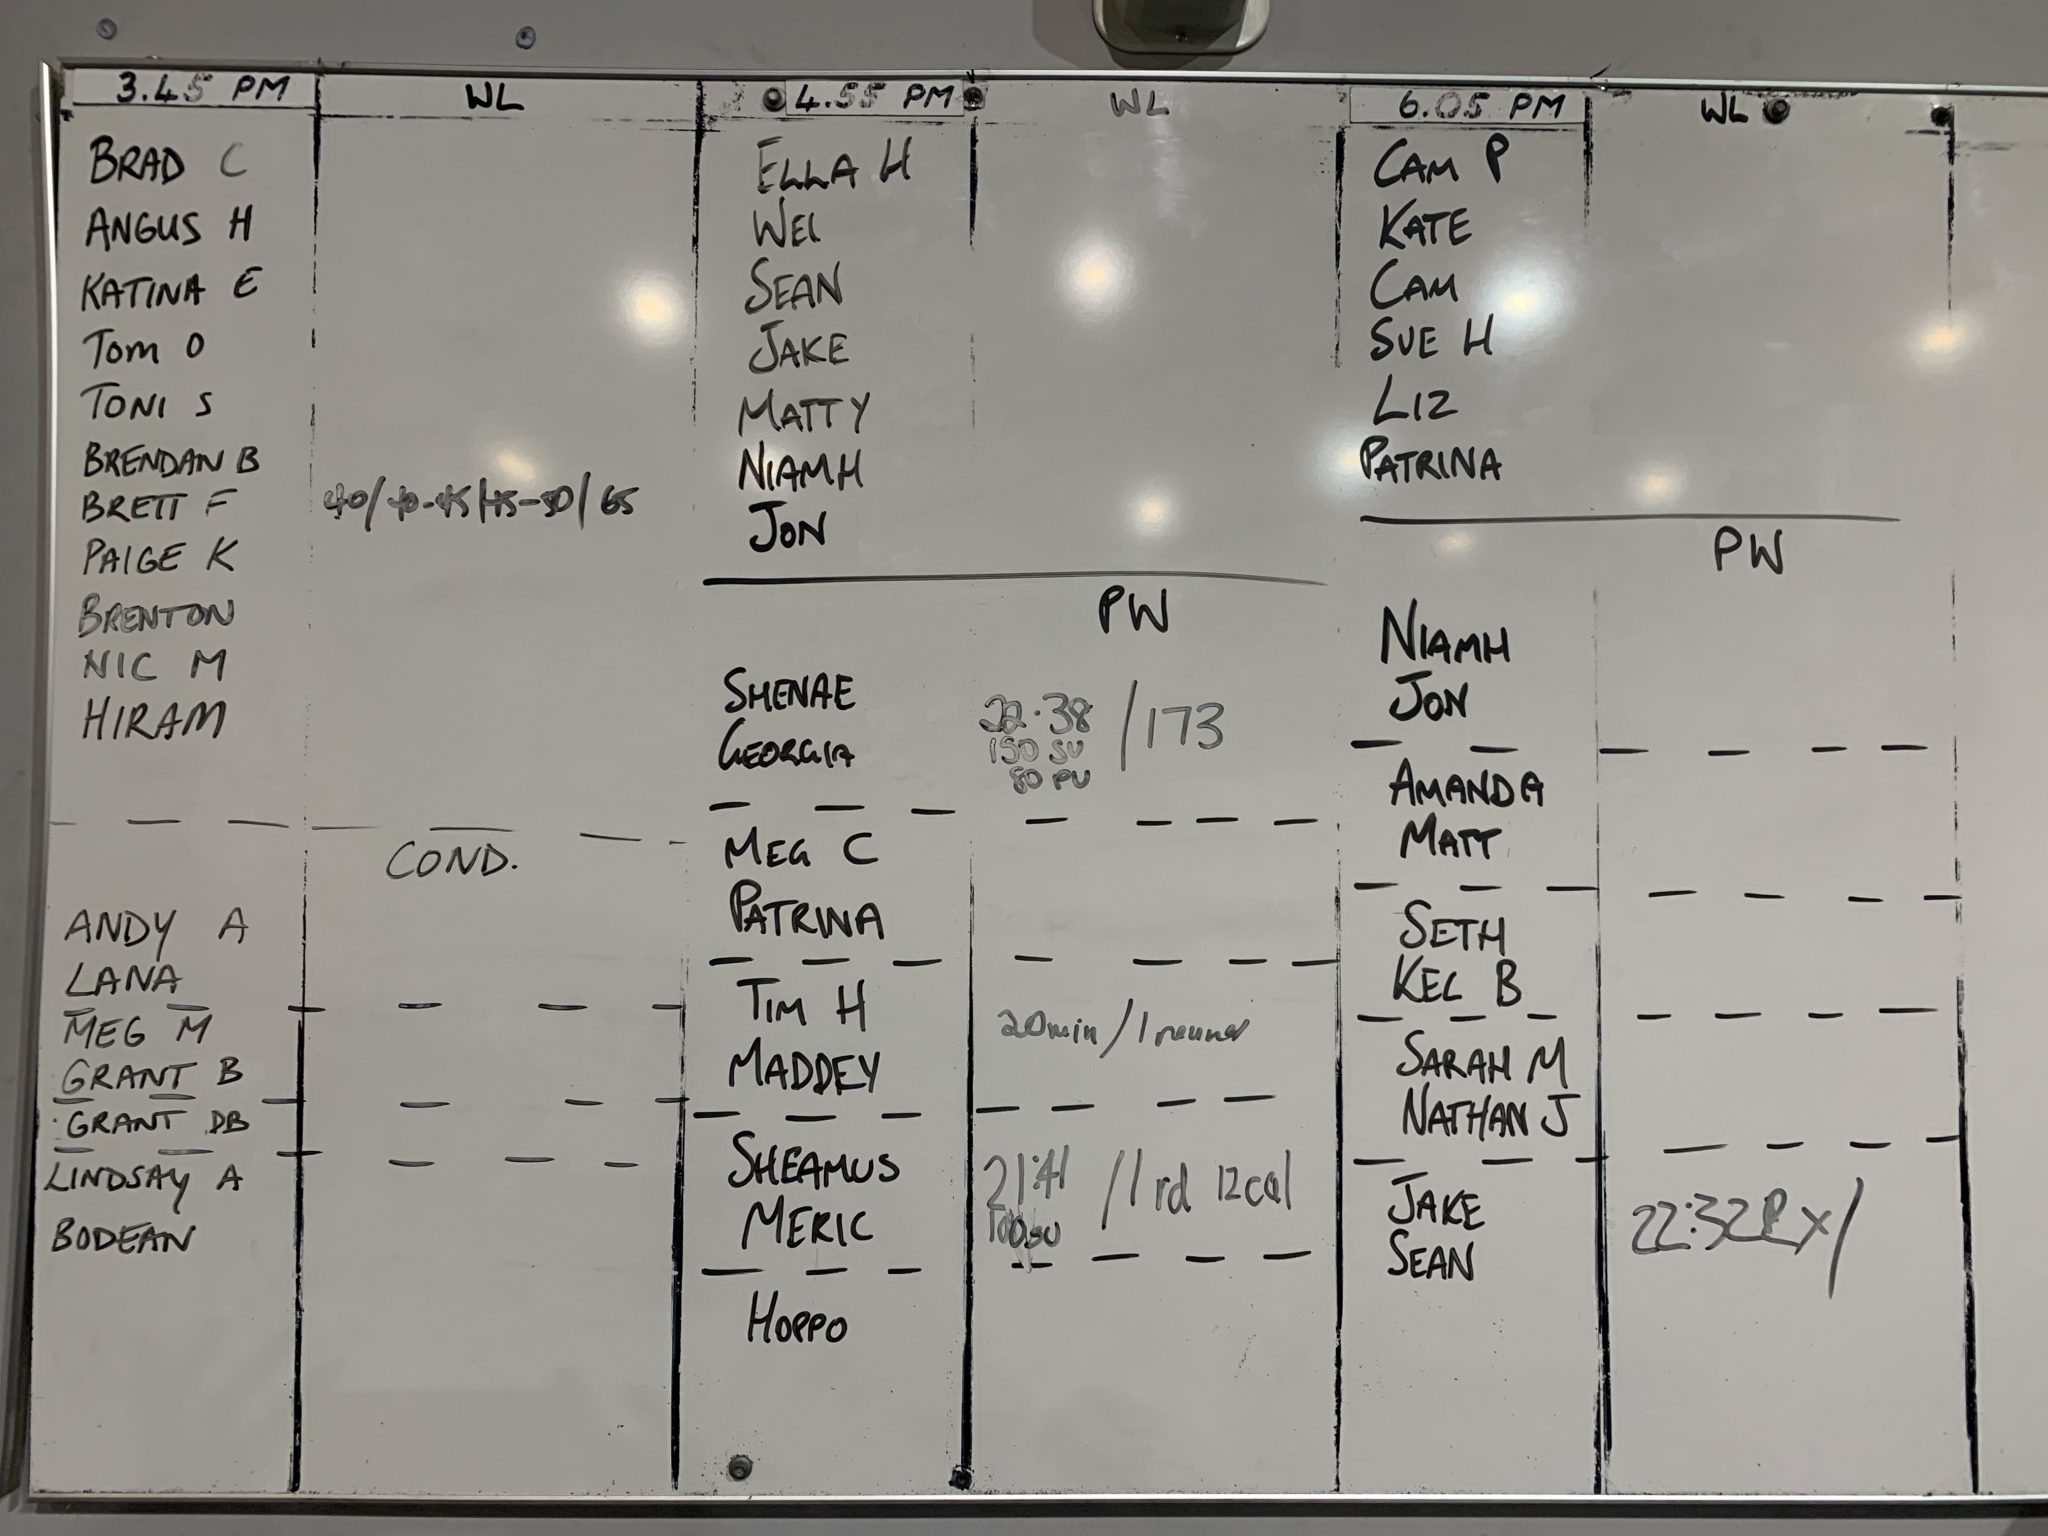 3.45 PM WL
BRAD C
ANGUS H
KATINA E
TOM O
TONI S
BRENDAN B
BRETT F 40/40-45/45-50/65
PAIGE K
BRENTON
NIC M
HIRAM
COND.
ANDY A
LANA
MEG M
GRANT B
GRANT DB
LINDSAY A
BODEAN
4.55 PM WL
ELLA H
WEI
SEAN
JAKE
MATTY
NIAMH
JON
PW
SHENAE
GEORGIA
22:38 /173
150 SU
80 PU
MEG C
PATRINA
TIM H
MADDEY
20min/1 
SHEAMUS
MERIC
21:41 /1 rd 12cal
100su
HOPPO
6.05 PM WL
CAM P
KATE
CAM
SUE H
LIZ
PATRINA
PW
NIAMH
JON
AMANDA
MATT
SETH
KEL B
SARAH M
NATHAN J
JAKE
SEAN
22:32 Rx/